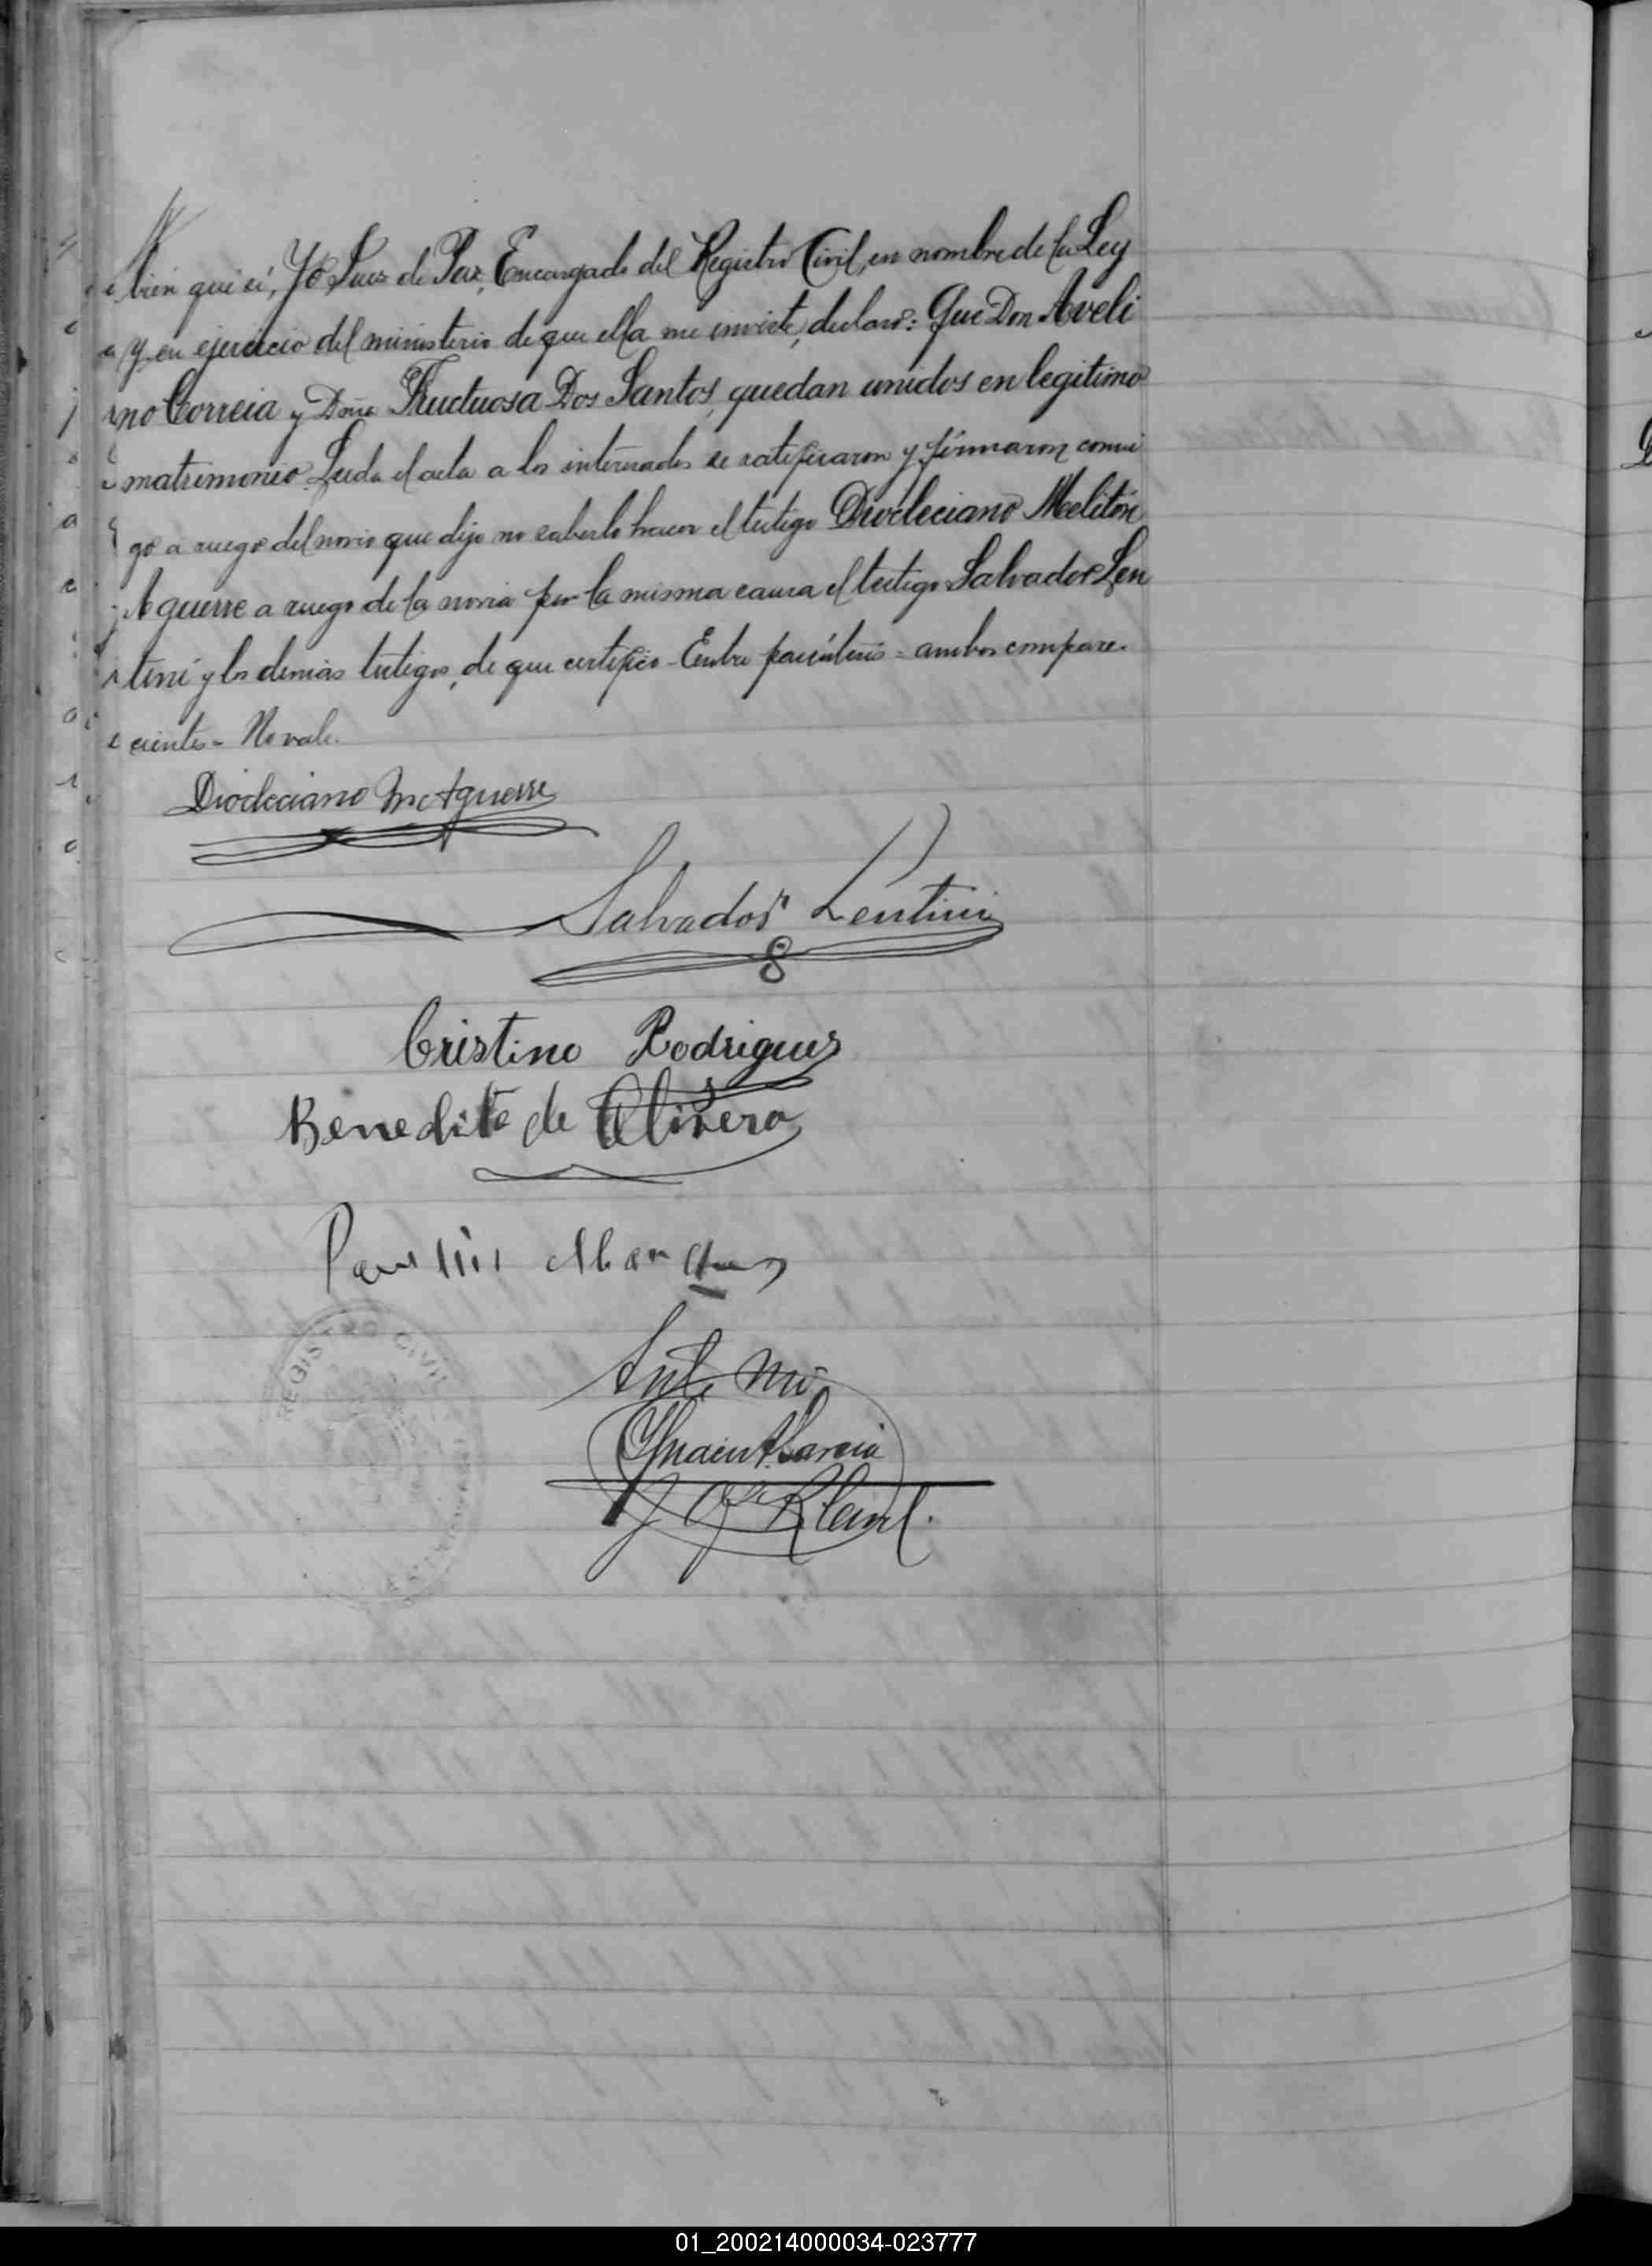 bien que sí, Yo Juez de Paz, Encargado del Registro Civil, en nombre de la Ley
y en ejercicio del ministerio de que ella me inviste, declaro: Que Don Aveli
no Correia y Doña Fructuosa Dos Santos, quedan unidos en legitimo
matrimonio. Leida el acta a los interesados se ratificaron y firmaron conmi
go a ruego del novio que dijo no saberlo hacer el testigo Diocleciano Melitón
Aguerre a ruego de la novia por la misma causa el testigo Salvador Len
tini y los demás testigos, de que certifico - Entre paréntesis = ambos compare-
cientes = No vale.
Diocleciano M Aguerre
Salvador Lentini
Cristino Rodriguez
Benedito de Olivera
Ante mi
Garcia
REGISTRO CIVIL
01_200214000034-023777